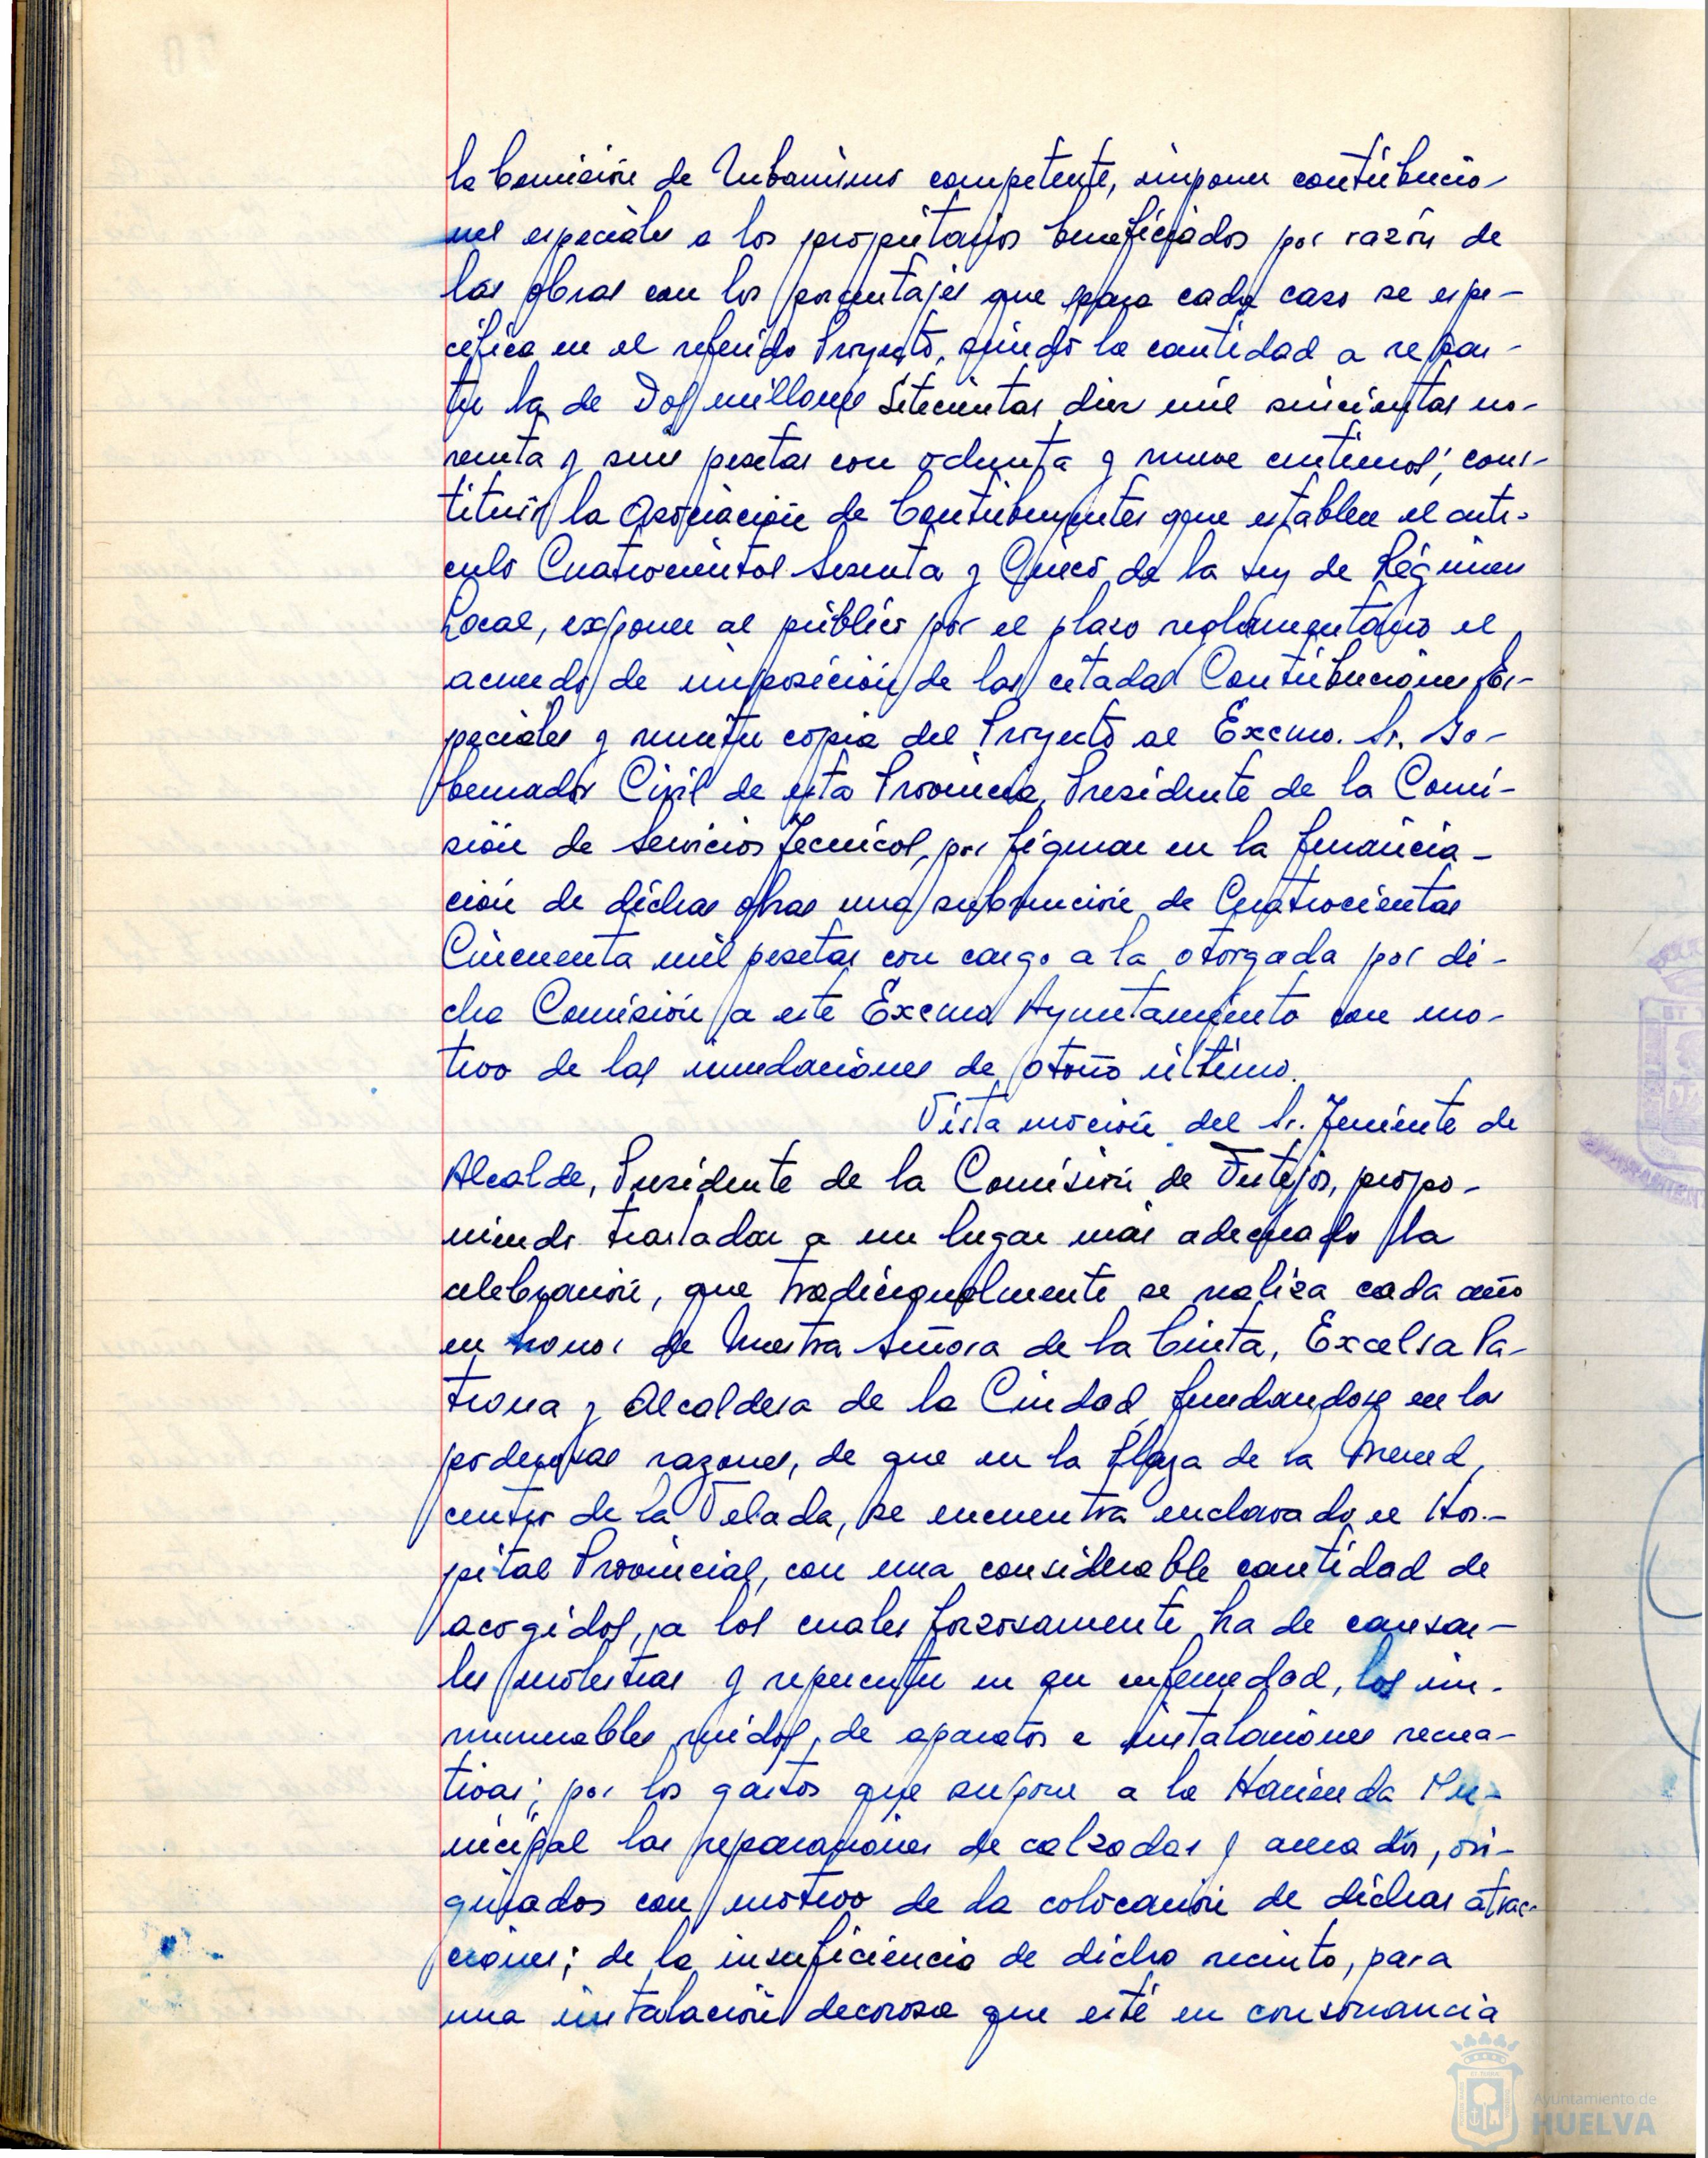 la Comisión de Urbanismo competente, imponer contribucio-
nes especiales a los propietarios beneficiados por razón de
las obras con los porcentajes que para cada caso se espe-
cifica en el referido Proyecto, siendo la cantidad a repar-
tir la de Dos millones Setecientas diez mil seiscientas no-
venta y seis pesetas con ochenta y nueve centimos; cons-
tituir la Asociación de Contribuyentes que establece el artí-
culo Cuatrocientos Sesenta y Cinco de la Ley de Régimen
Local, exponer al público por el plazo reglamentario el
acuerdo de imposición de las citadas Contribuciones Es-
peciales y remitir copia del Proyecto al Excmo. Sr. Go-
bernador Civil de esta Provincia, Presidente de la Comi-
sión de Servicios Tecnicos, por figurar en la financia-
ción de dichas obras una subvención de Cuatrocientas
Cincuenta mil pesetas con cargo a la otorgada por di-
cha Comisión a este Excmo Ayuntamiento con mo-
tivo de las inundaciones de otoño último.
Vista moción del Sr. Teniente de
Alcalde, Presidente de la Comisión de Festejos, propo-
niendo trasladar a un lugar más adecuado la
celebración, que tradicionalmente se realiza cada año
en honor de Nuestra Señora de la Cinta, Excelsa Pa-
trona y Alcaldesa de la Ciudad, fundandose en las
poderosas razones, de que en la Plaza de la Merced,
centro de la Velada, se encuentra enclavado el Hos-
pital Provincial, con una considerable cantidad de
acogidos, a los cuales forzosamente ha de causar-
les molestias y repercutir en su enfermedad, los in-
numerables ruidos, de aparatos e instalaciones recrea-
tivas; por los gastos que supone a la Hacienda Mu-
nicipal las reparaciones de calzadas y acerados, ori-
ginados con motivo de la colocación de dichas atrac-
ciones; de la insuficiencia de dicho recinto, para
una instalación decorosa que esté en consonancia
Ayuntamiento de
HUELVA